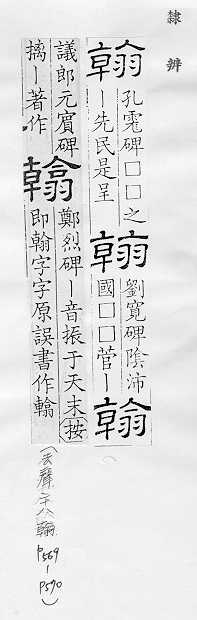 隸辨
翰孔霓碑□□之
｜先民是呈翰劉寬碑陰沛
國□□營｜翰
議郎元賓碑
摛｜著作翰鄭烈碑｜音振于天末按
即翰字字原誤書作翰
(去聲二十八翰 P569-P590)